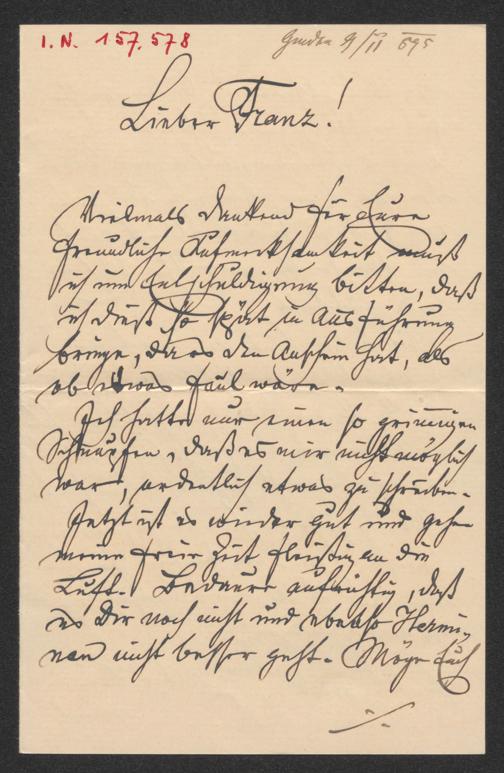 I. N. 157.578
Gmden 9/II 895
Lieber Franz!
Vielmals dankend für Eure
freundliche Aufmerksamkeit muß
ich um Entschuldigung bitten, daß
ich dieß so spät in Ausführung
bringe, da es den Anschein hat, als
ob etwas faul wäre.
Ich hatte nur einen so grimmigen
Schnupfen, daß es mir nicht möglich
war, ordentlich etwas zu schreiben.
Jetzt ist es wieder gut und gehe
meine freie Zeit fleißig an die
Luft. Bedaure aufrichtig, daß
es Dir noch nicht und ebenso Hermi-
nen nicht besser geht. Möge Euch
./.